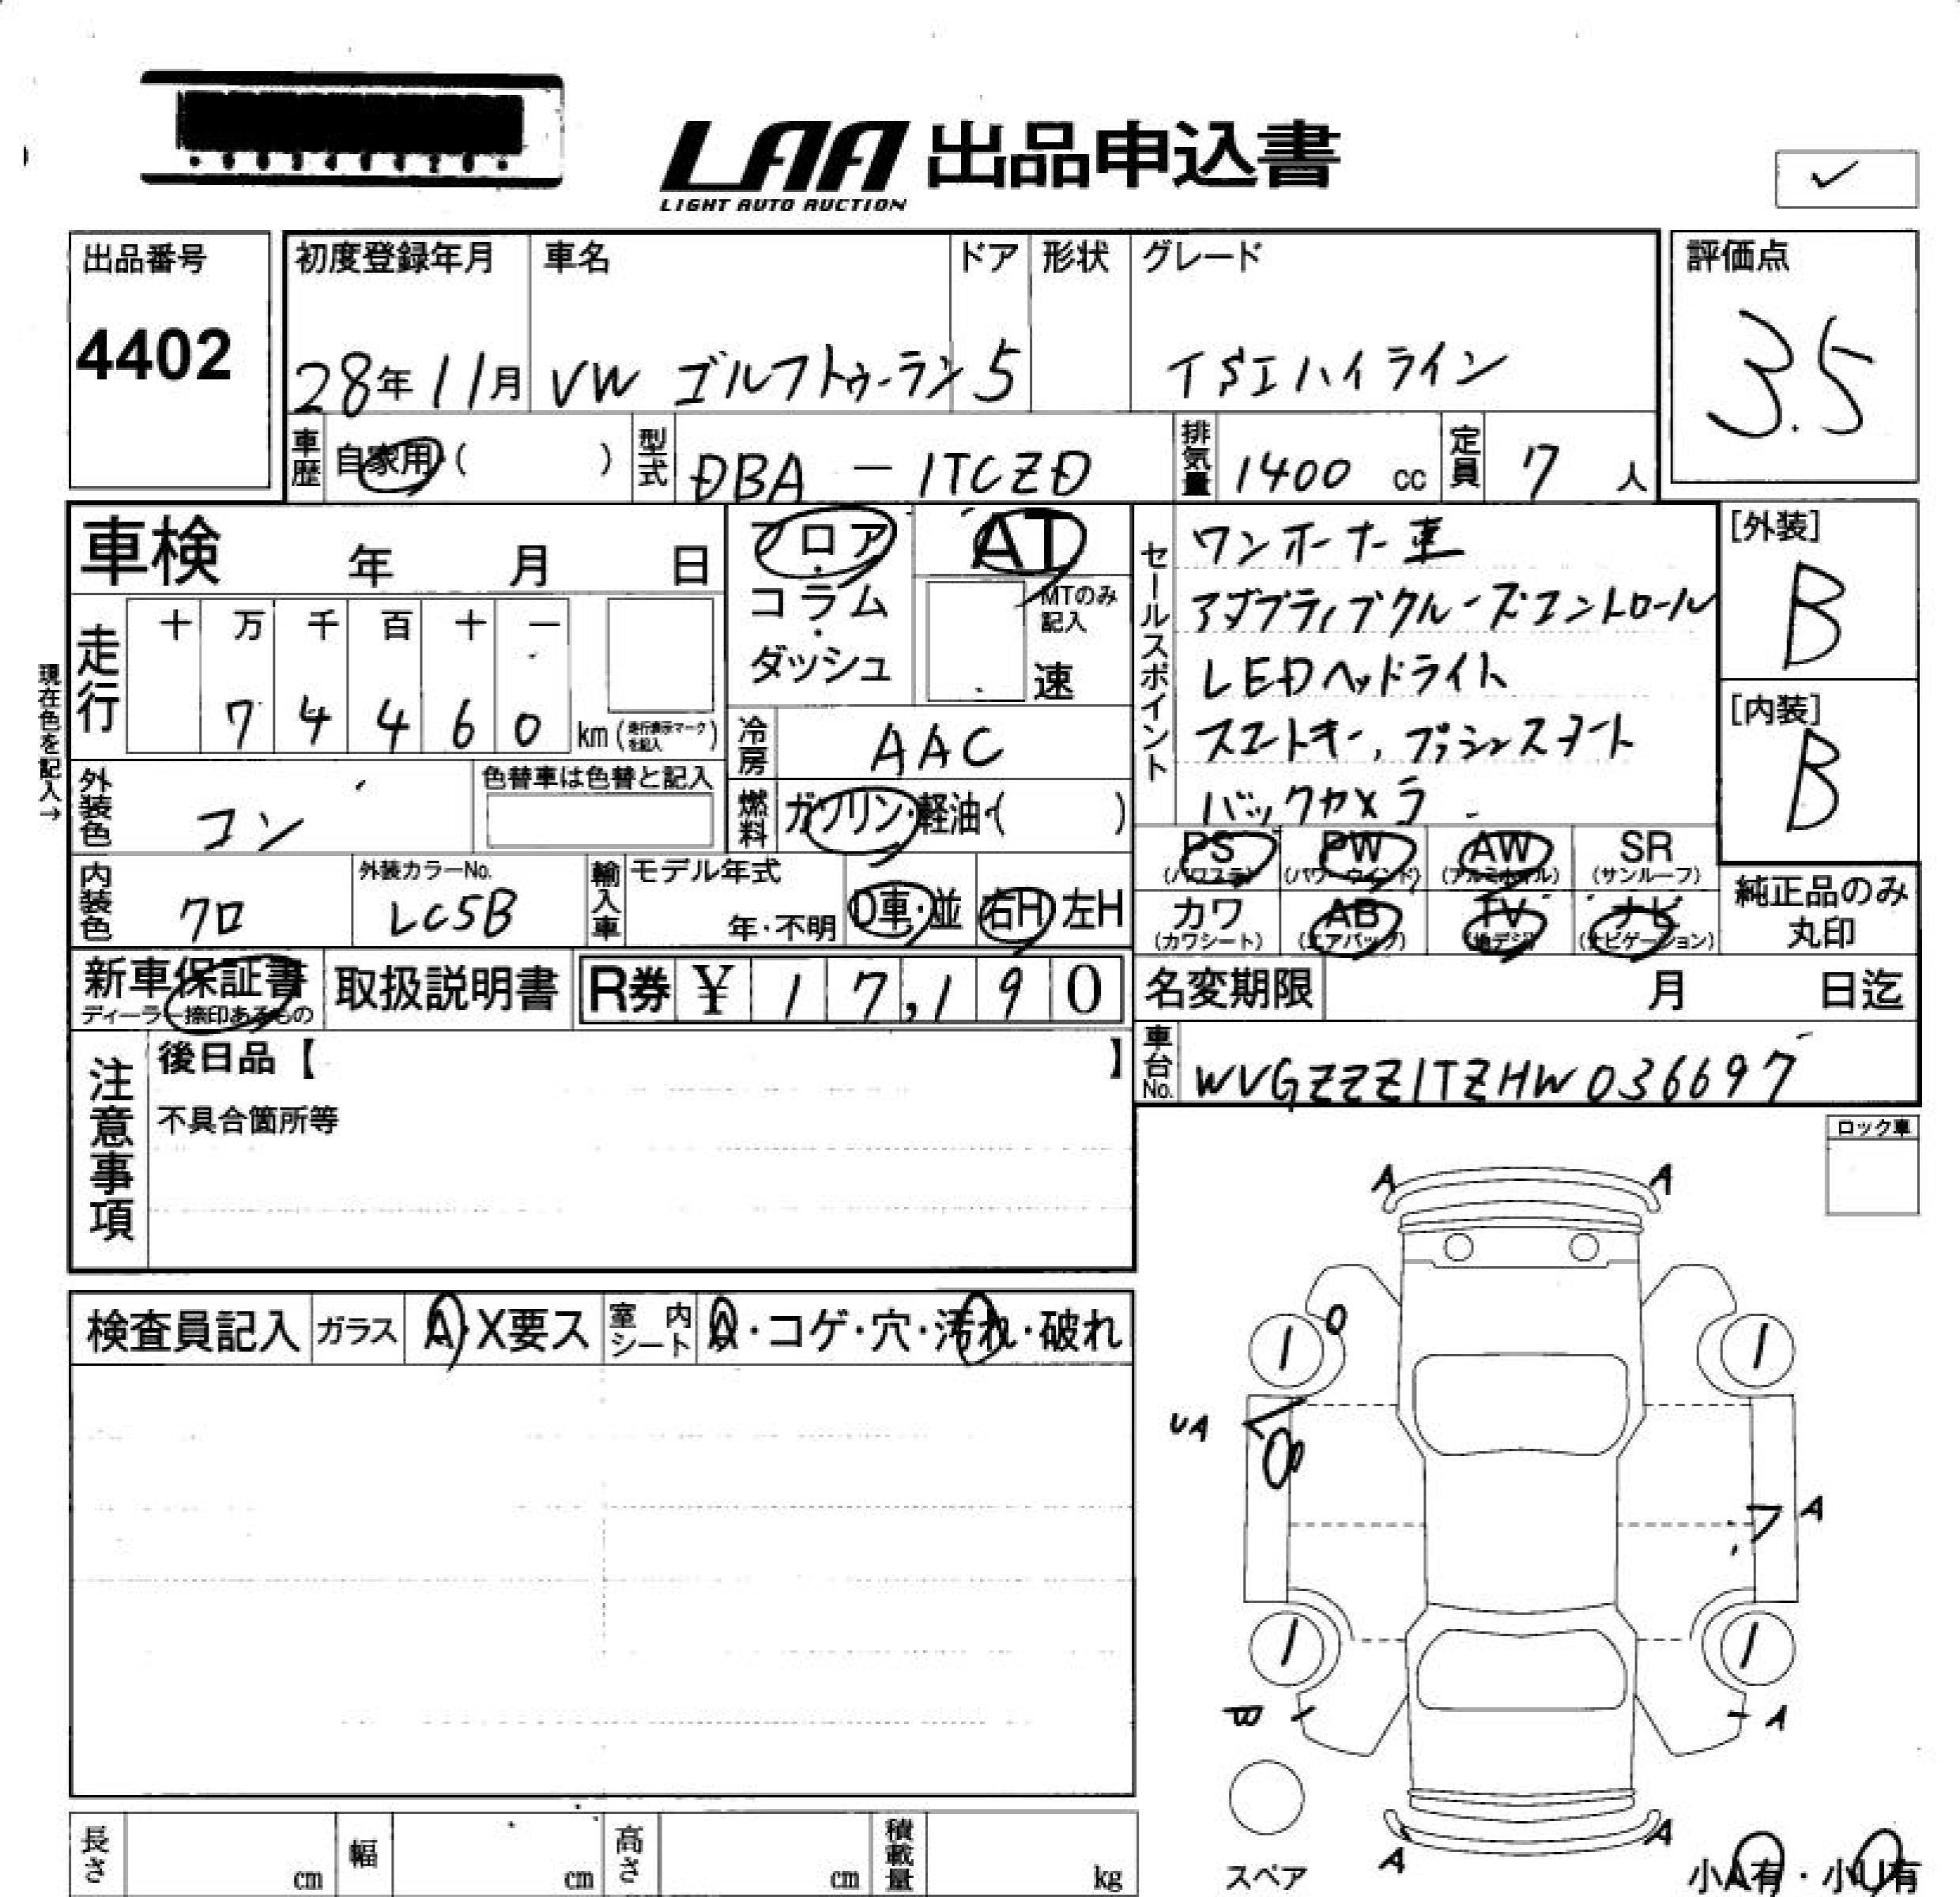 LAA 出品申込書
LIGHT AUTO AUCTION
✓
出品番号
4402
初度登録年月
28年11月
車名
VW ゴルフトゥーラン
ドア
5
形状
グレード
TSIハイライン
評価点
3.5
車歴
自家用・( )
型式
DBA-1TCZD
排気量
1400 cc
定員
7 人
車検 年 月 日
走行
十 万 千 百 十 一
7 4 4 6 0 km(走行表示マークを記入)
現在色を記入→
外装色
コン
色替車は色替と記入
内装色
クロ
外装カラーNo.
LC5B
フロア・コラム・ダッシュ
AT
MTのみ記入
速
冷房
AAC
燃料
ガソリン・軽油・( )
輸入車
モデル年式
年・不明
D車・並
右H 左H
セールスポイント
ワンオーナー車
アダプティブクルーズコントロール
LEDヘッドライト
スマートキー, プッシュスタート
バックカメラ
[外装]
B
[内装]
B
PS PW AW SR
(パワステ) (パワーウインド) (アルミホイル) (サンルーフ)
カワ AB TV ナビ
(カワシート) (エアバッグ) (地デジ) (ナビゲーション)
純正品のみ
丸印
新車保証書
ディーラー捺印あるもの
取扱説明書
R券 ¥ 17,190
名変期限 月 日迄
車台No.
WVGZZZ1TZHW036697
注意事項
後日品【 】
不具合箇所等
ロック車
検査員記入 ガラス A・X要ス 室内シート A・コゲ・穴・汚れ・破れ
A A
UA
A
B
A
A A
スペア
小A有・小U有
長さ cm 幅 cm 高さ cm 積載量 kg